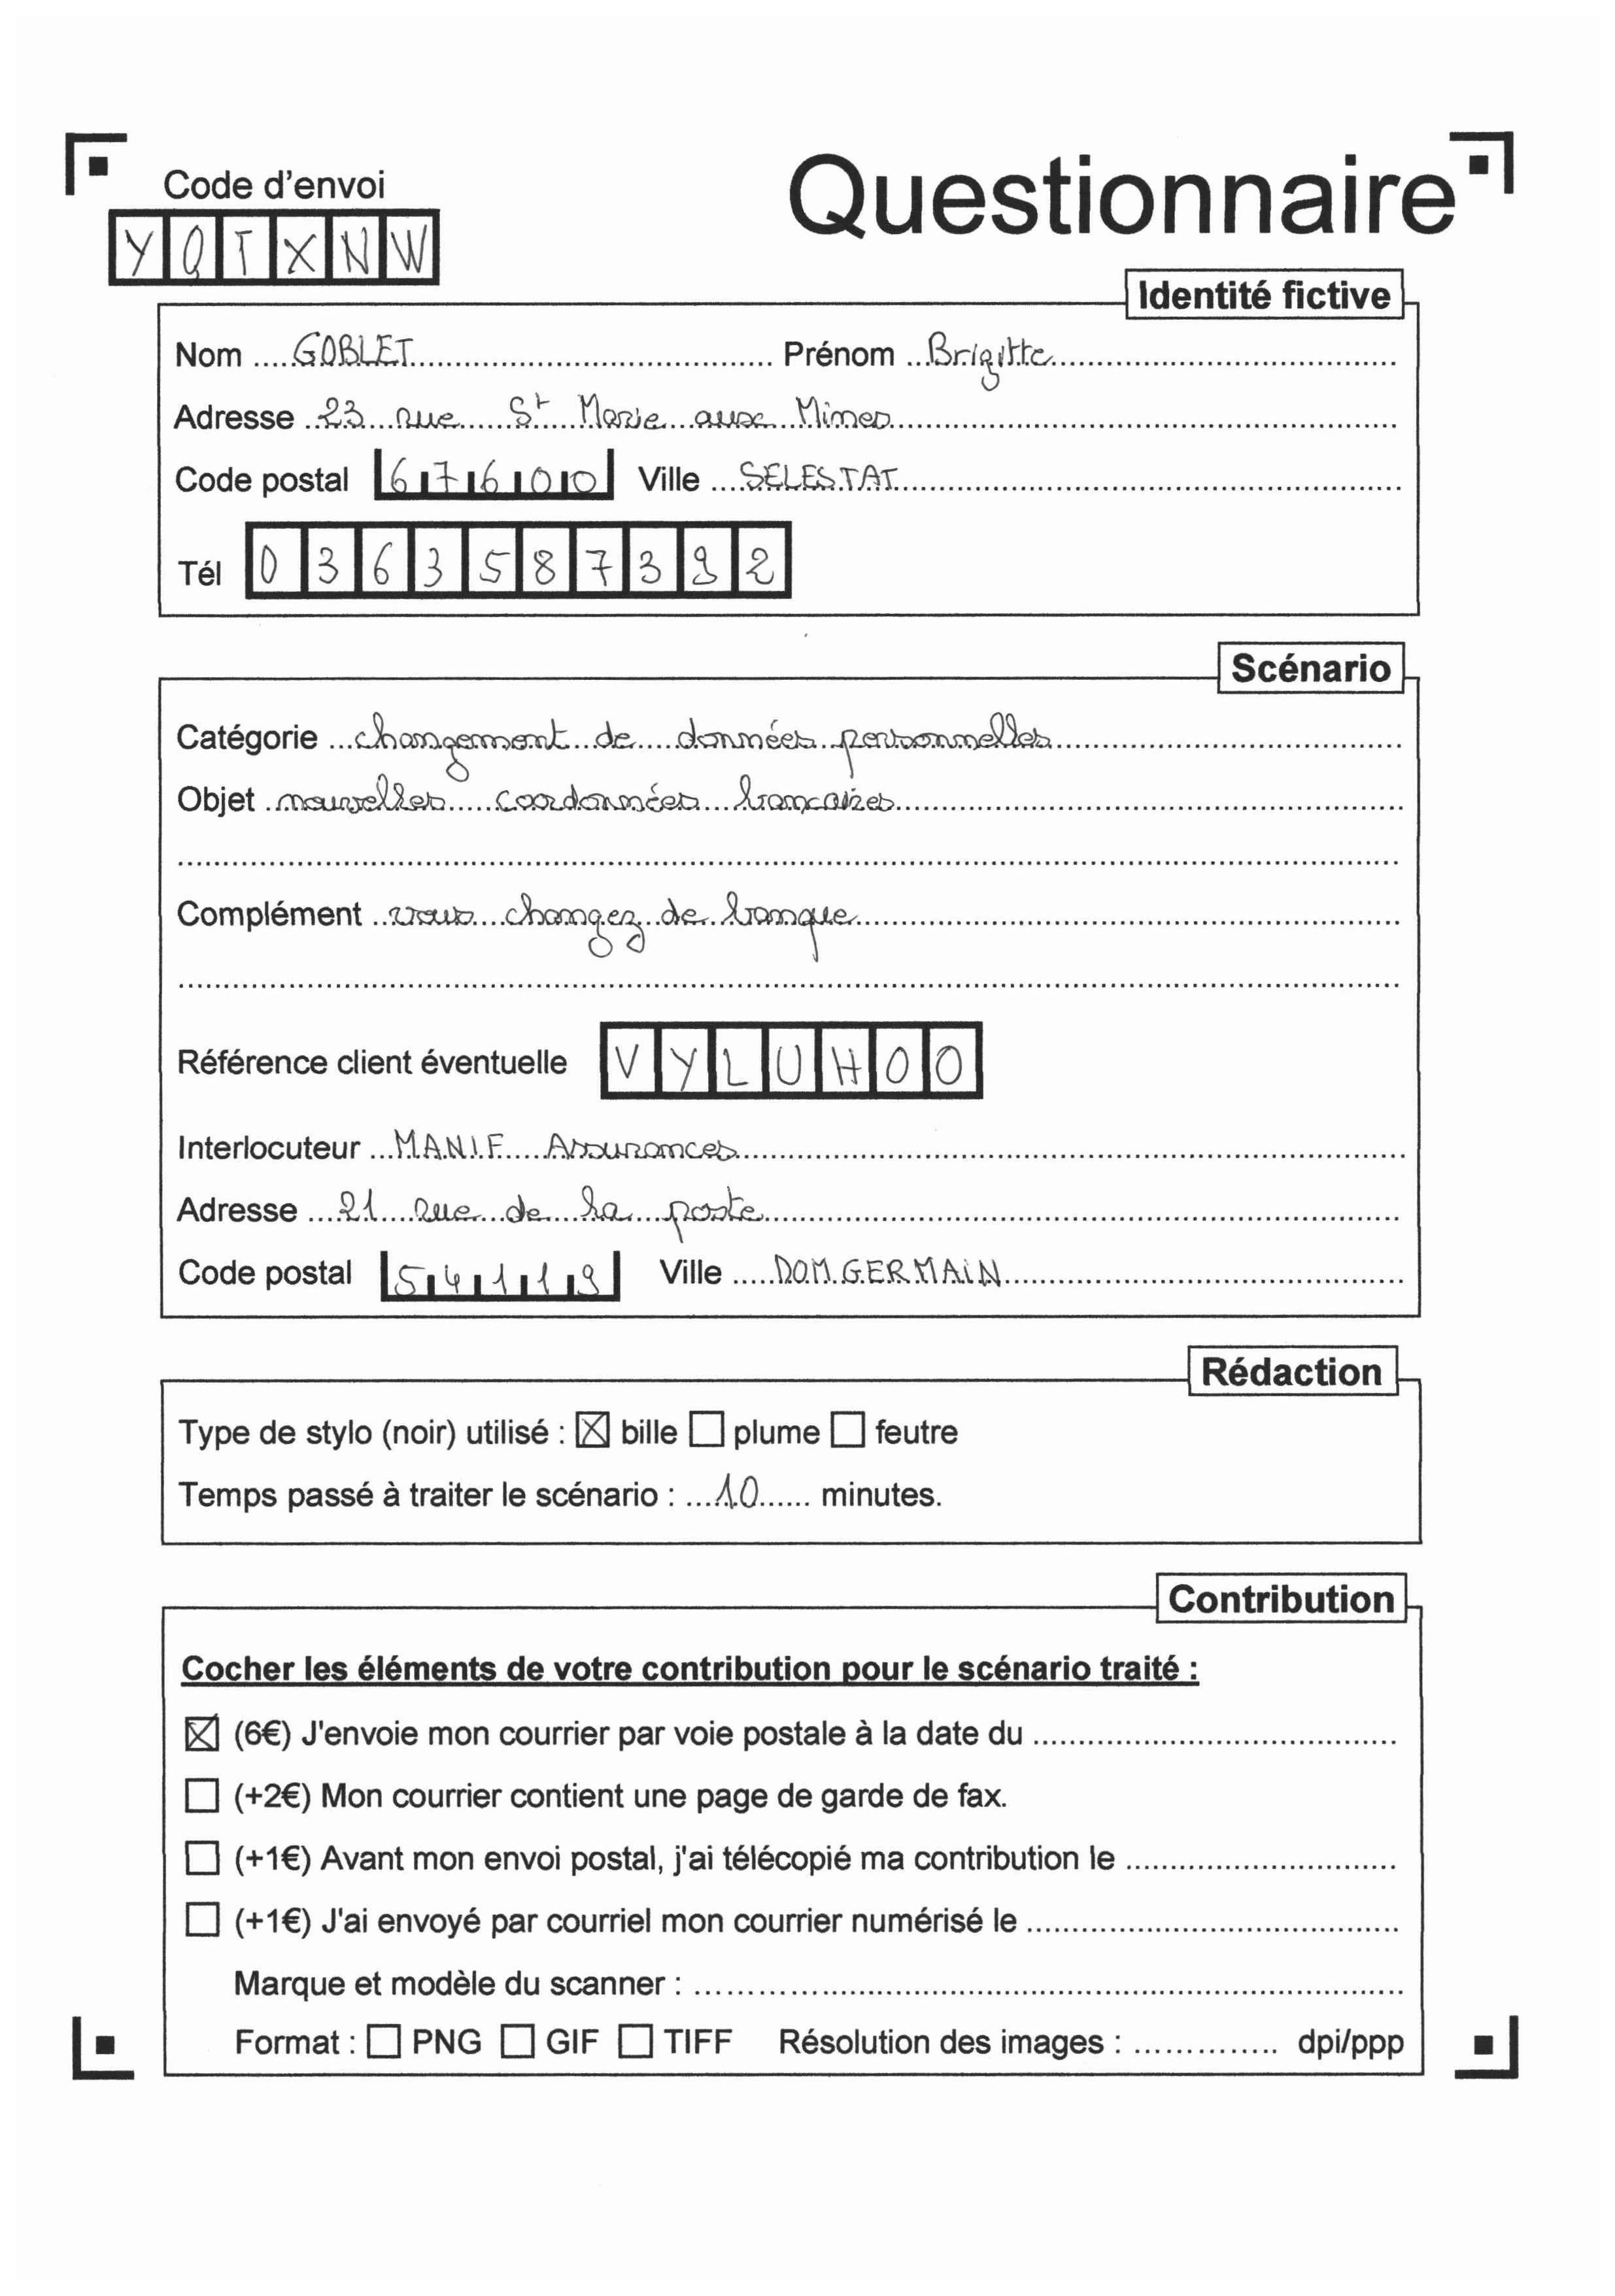 Code d'envoi
Questionnaire
YQTXNW
Identité fictive
Nom GOBLET Prénom Brigitte
Adresse 23 rue St Marie aux Mines
Code postal 67600 Ville SELESTAT
Tél 0363587392
Scénario
Catégorie changement de données personnelles
Objet nouvelles coordonnées bancaires
Complément vous changez de banque
Référence client éventuelle VYLUHOO
Interlocuteur MANIF Assurances
Adresse 21 rue de la poste
Code postal 54119 Ville DOMGERMAIN
Rédaction
Type de stylo (noir) utilisé : ☒ bille ☐ plume ☐ feutre
Temps passé à traiter le scénario : 10 minutes.
Contribution
Cocher les éléments de votre contribution pour le scénario traité :
☒ (6€) J'envoie mon courrier par voie postale à la date du
☐ (+2€) Mon courrier contient une page de garde de fax.
☐ (+1€) Avant mon envoi postal, j'ai télécopié ma contribution le
☐ (+1€) J'ai envoyé par courriel mon courrier numérisé le
Marque et modèle du scanner :
Format : ☐ PNG ☐ GIF ☐ TIFF Résolution des images : dpi/ppp